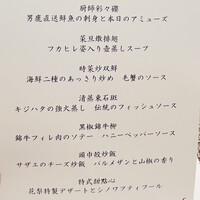 厨師彩々碟
男鹿直送鮮魚の刺身と本日のアミューズ
菜豆燉排翅
フカヒレ姿入り壺蒸しスープ
時菜炒双鮮
海鮮二種のあっさり炒め 毛蟹のソース
清蒸東石斑
キジハタの強火蒸し 伝統のフィッシュソース
黒椒錦牛柳
錦牛フィレ肉のソテー ハニーペッパーソース
頭巾絞炒飯
サザエのチーズ炒飯 パルメザンと山椒の香り
特式甜點心
花梨特製デザートとシノワプティフール